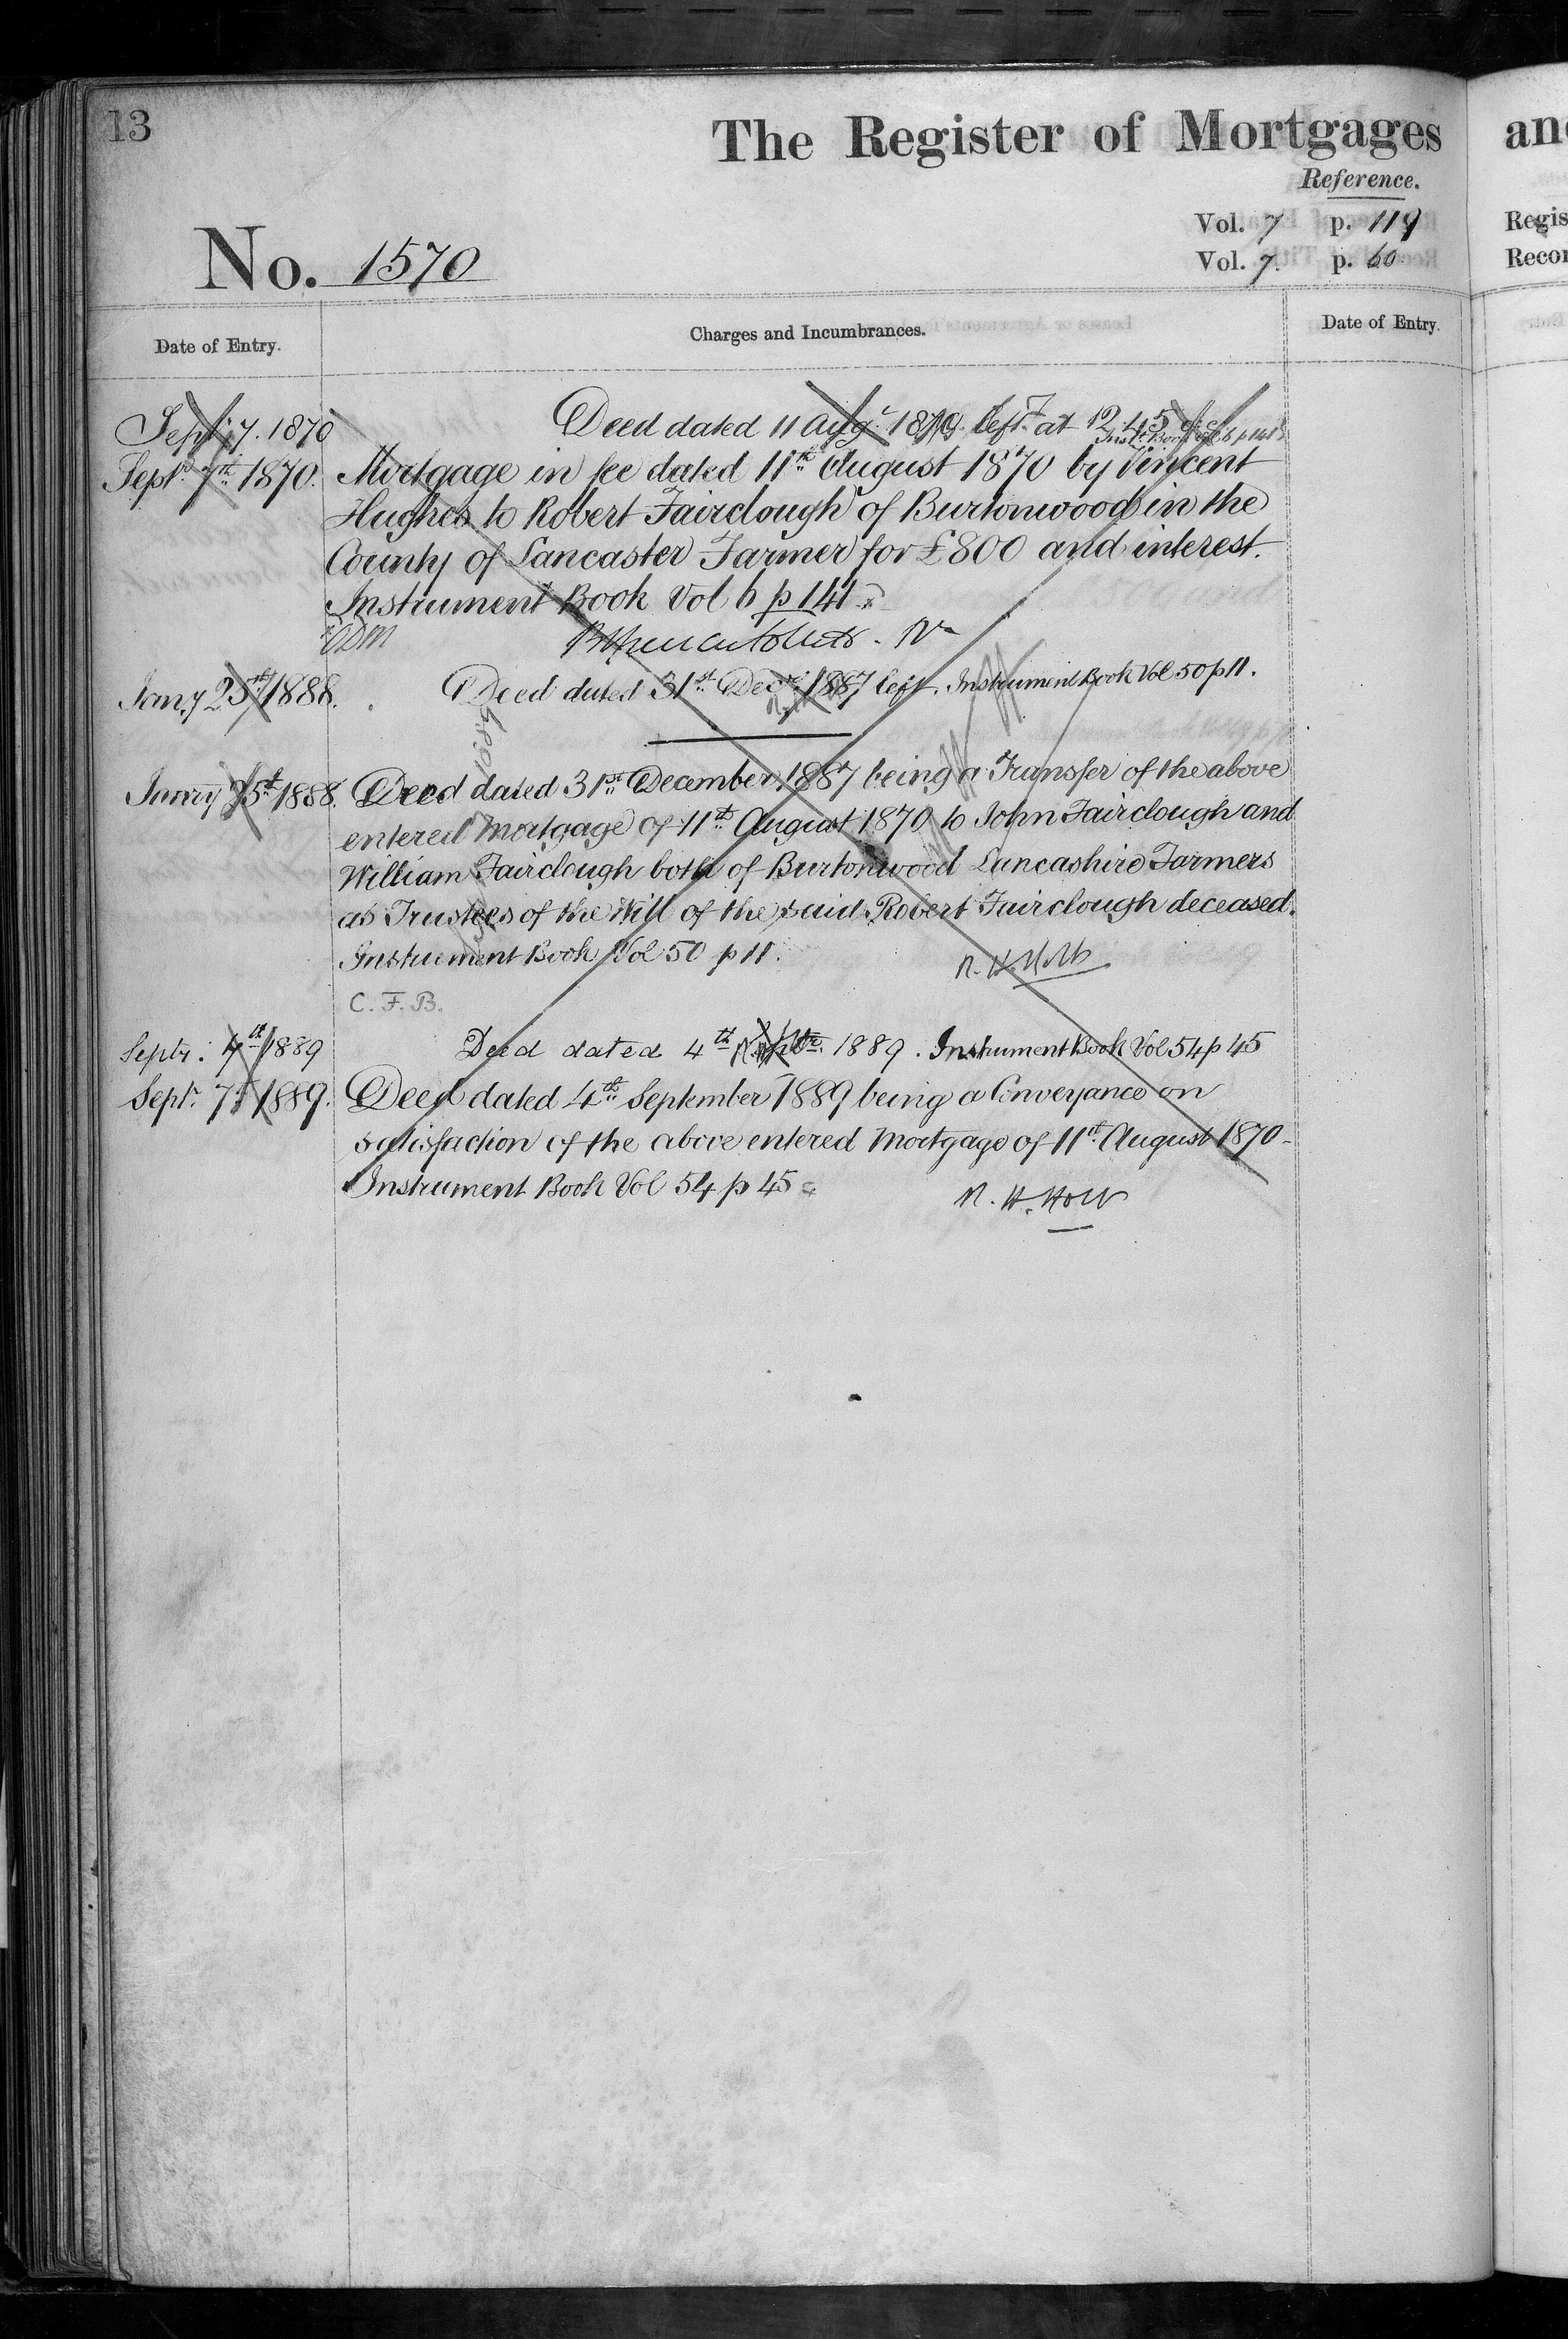 13
The Register of Mortgages
Reference.
Vol. 7 p. 119
Vol. 7. p. 60
No. 1570
Date of Entry.
Charges and Incumbrances.
Date of Entry.
Sept. 7. 1870
Deed dated 11 Augt. 1870. left at 12 45
Inst. Book Vol 6 p 141
Septr. 7th 1870.
Mortgage in fee dated 11th August 1870 by Vincent
Hughes to Robert Fairclough of Burtonwood in the
County of Lancaster Farmer for £800 and interest.
Instrument Book Vol 6 p 141
Jany 25th 1888.
Deed dated 31st Decr. 1887 left. Instrument Book Vol 50 p 11.
Janry 25th 1888.
Deed dated 31st December 1887 being a Transfer of the above
entered Mortgage of 11th August 1870 to John Fairclough and
William Fairclough both of Burtonwood Lancashire Farmers
as Trustees of the Will of the said Robert Fairclough deceased.
Instrument Book Vol 50 p 11.
R. H. Holt
C. F. B.
Septr. 4th 1889
Deed dated 4th Septr. 1889. Instrument Book Vol 54 p 45
Septr. 7th 1889.
Deed dated 4th September 1889 being a Conveyance on
satisfaction of the above entered Mortgage of 11th August 1870-
Instrument Book Vol 54 p 45
R. H. Holt
an
Regis
Recor